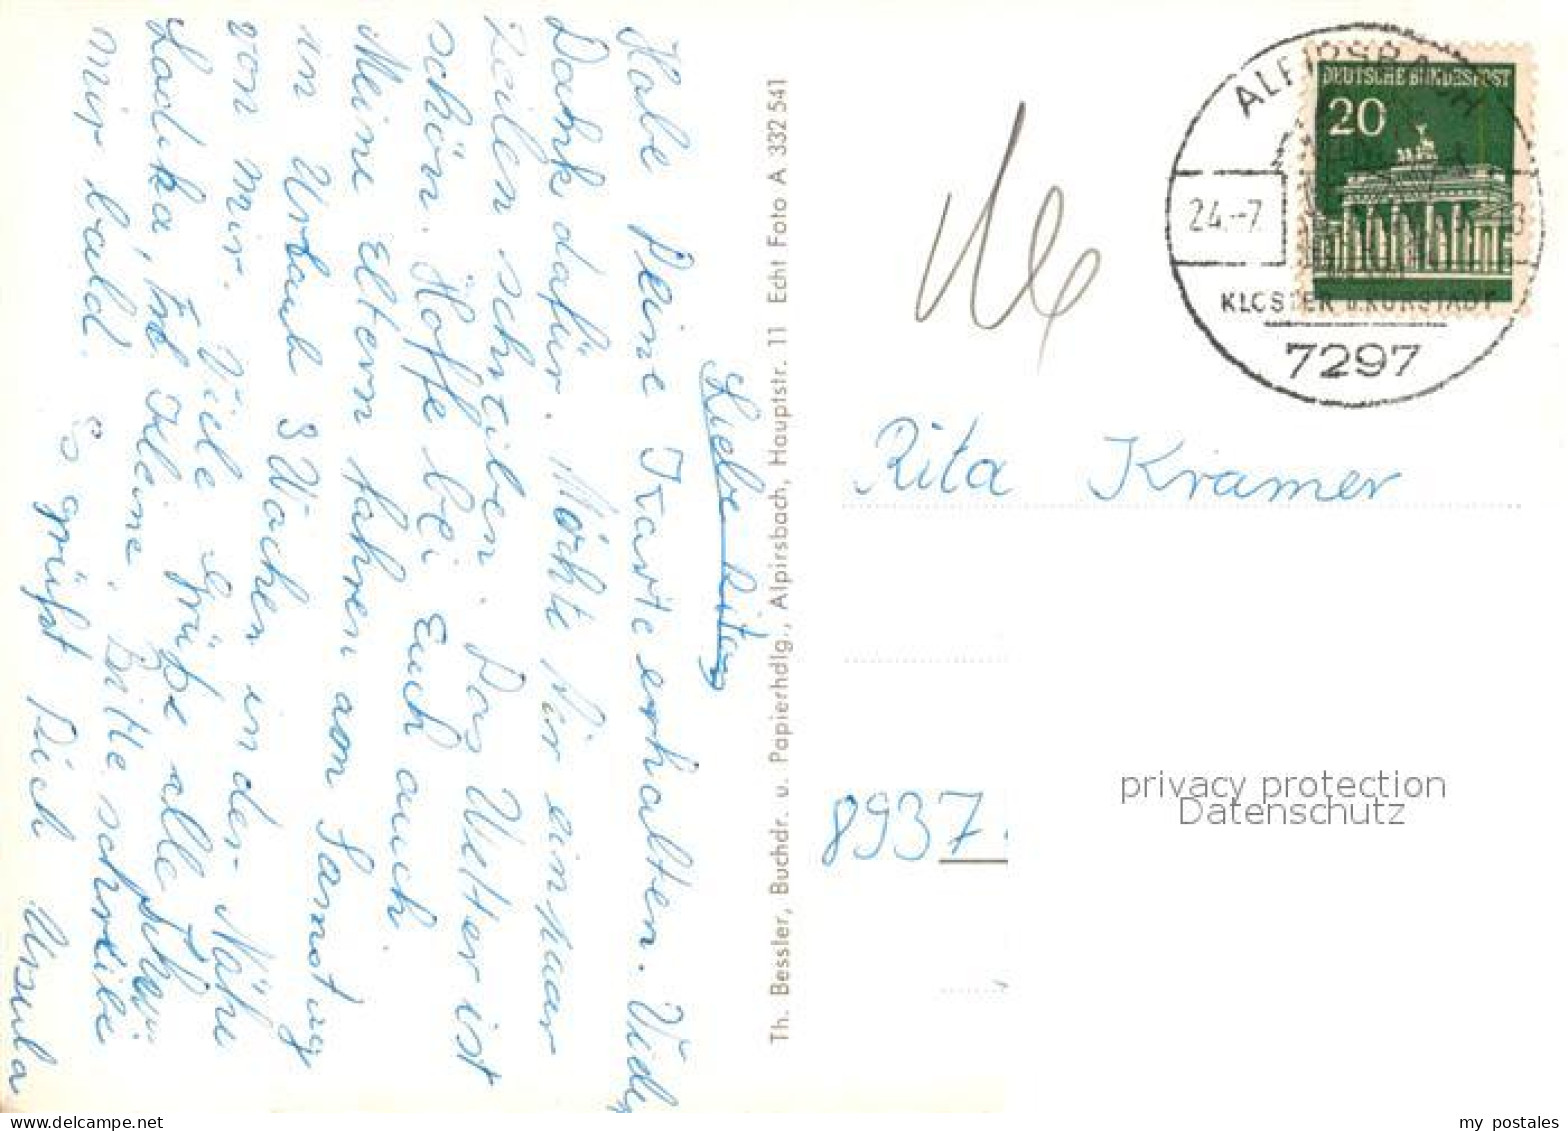 Liebe Rita,
Habe Deine Karte erhalten. Viel
Dank dafür. Möchte Dir ein paar
Zeilen schreiben. Das Wetter ist
schön. Hoffe bei Euch auch.
Meine Eltern fahren am Samstag
in Urlaub 3 Wochen in der Nähe
von mir. Viele Grüße alle
Bitte schreibe
mir bald.
Es grüßt Dich Ursula
Th. Bessler, Buchdr. u. Papierhdlg., Alpirsbach, Hauptstr. 11 Echt Foto A 332 541
ALPIRSBACH
DEUTSCHE BUNDESPOST
20
24.-7.
KLOSTER u. KURSTADT
7297
Rita Kramer
8937
privacy protection
Datenschutz
delcampe.net
my_postales